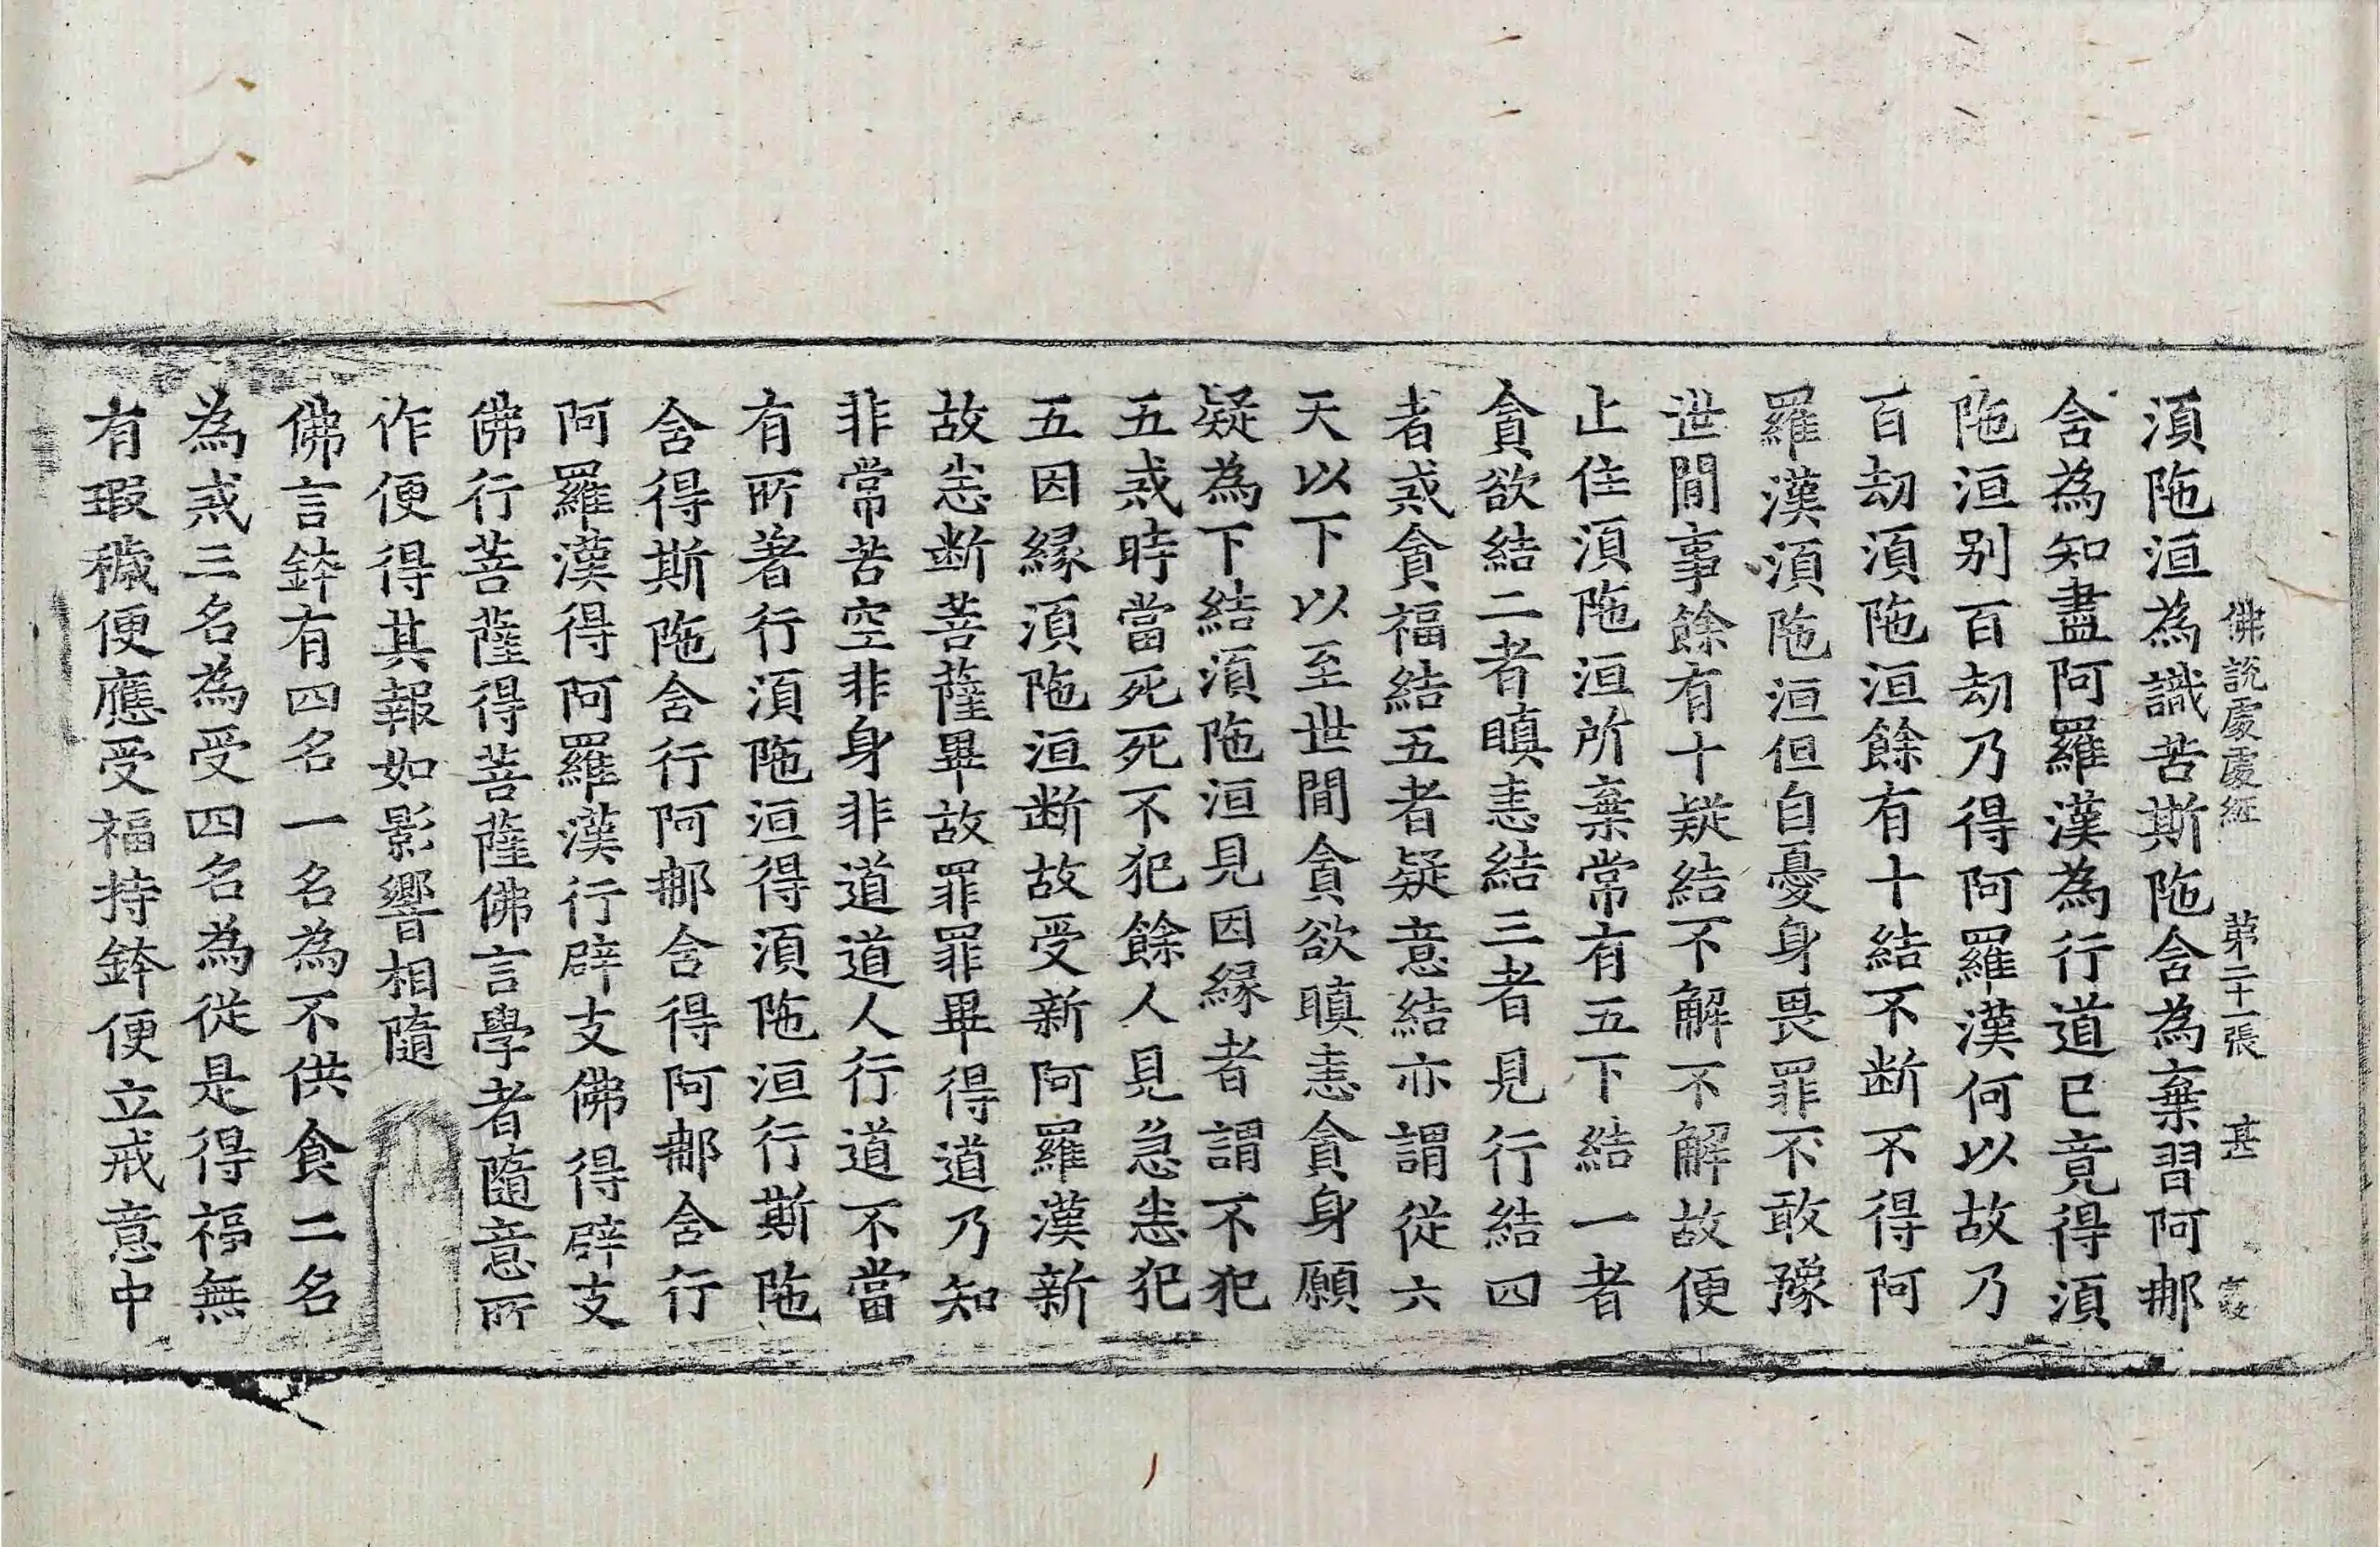 佛說處處經 第二十一張 甚
須陁洹為識苦斯陁含為棄習阿𨙻
含為知盡阿羅漢為行道已竟得須
陁洹别百劫乃得阿羅漢何以故乃
百劫須陁洹餘有十結不断不得阿
羅漢須陁洹但自憂身畏罪不敢豫
世閒事餘有十㲉結不解不解故便
止住須陁洹所棄常有五下結一者
貪欲結二者瞋恚結三者見行結四
者或貪福結五者疑意結亦謂從六
天以下以至世閒貪欲瞋恚貪身願
疑為下結須陁洹見因縁者謂不犯
五戒時當死死不犯餘人見急恚犯
五因縁須陁洹断故受新阿羅漢新
故恚断菩薩畢故罪罪畢得道乃知
非常苦空非身非道道人行道不當
有所著行須陁洹得須陁洹行斯陁
含得斯陁含行阿𨙻含得阿𨙻含行
阿羅漢得阿羅漢行辟支佛得辟支
佛行菩薩得菩薩佛言學者隨意所
作便得其報如影響相隨
佛言鉢有四名一名為不供食二名
為戒三名為受四名為從是得福無
有瑕穢便應受福持鉢便立戒意中